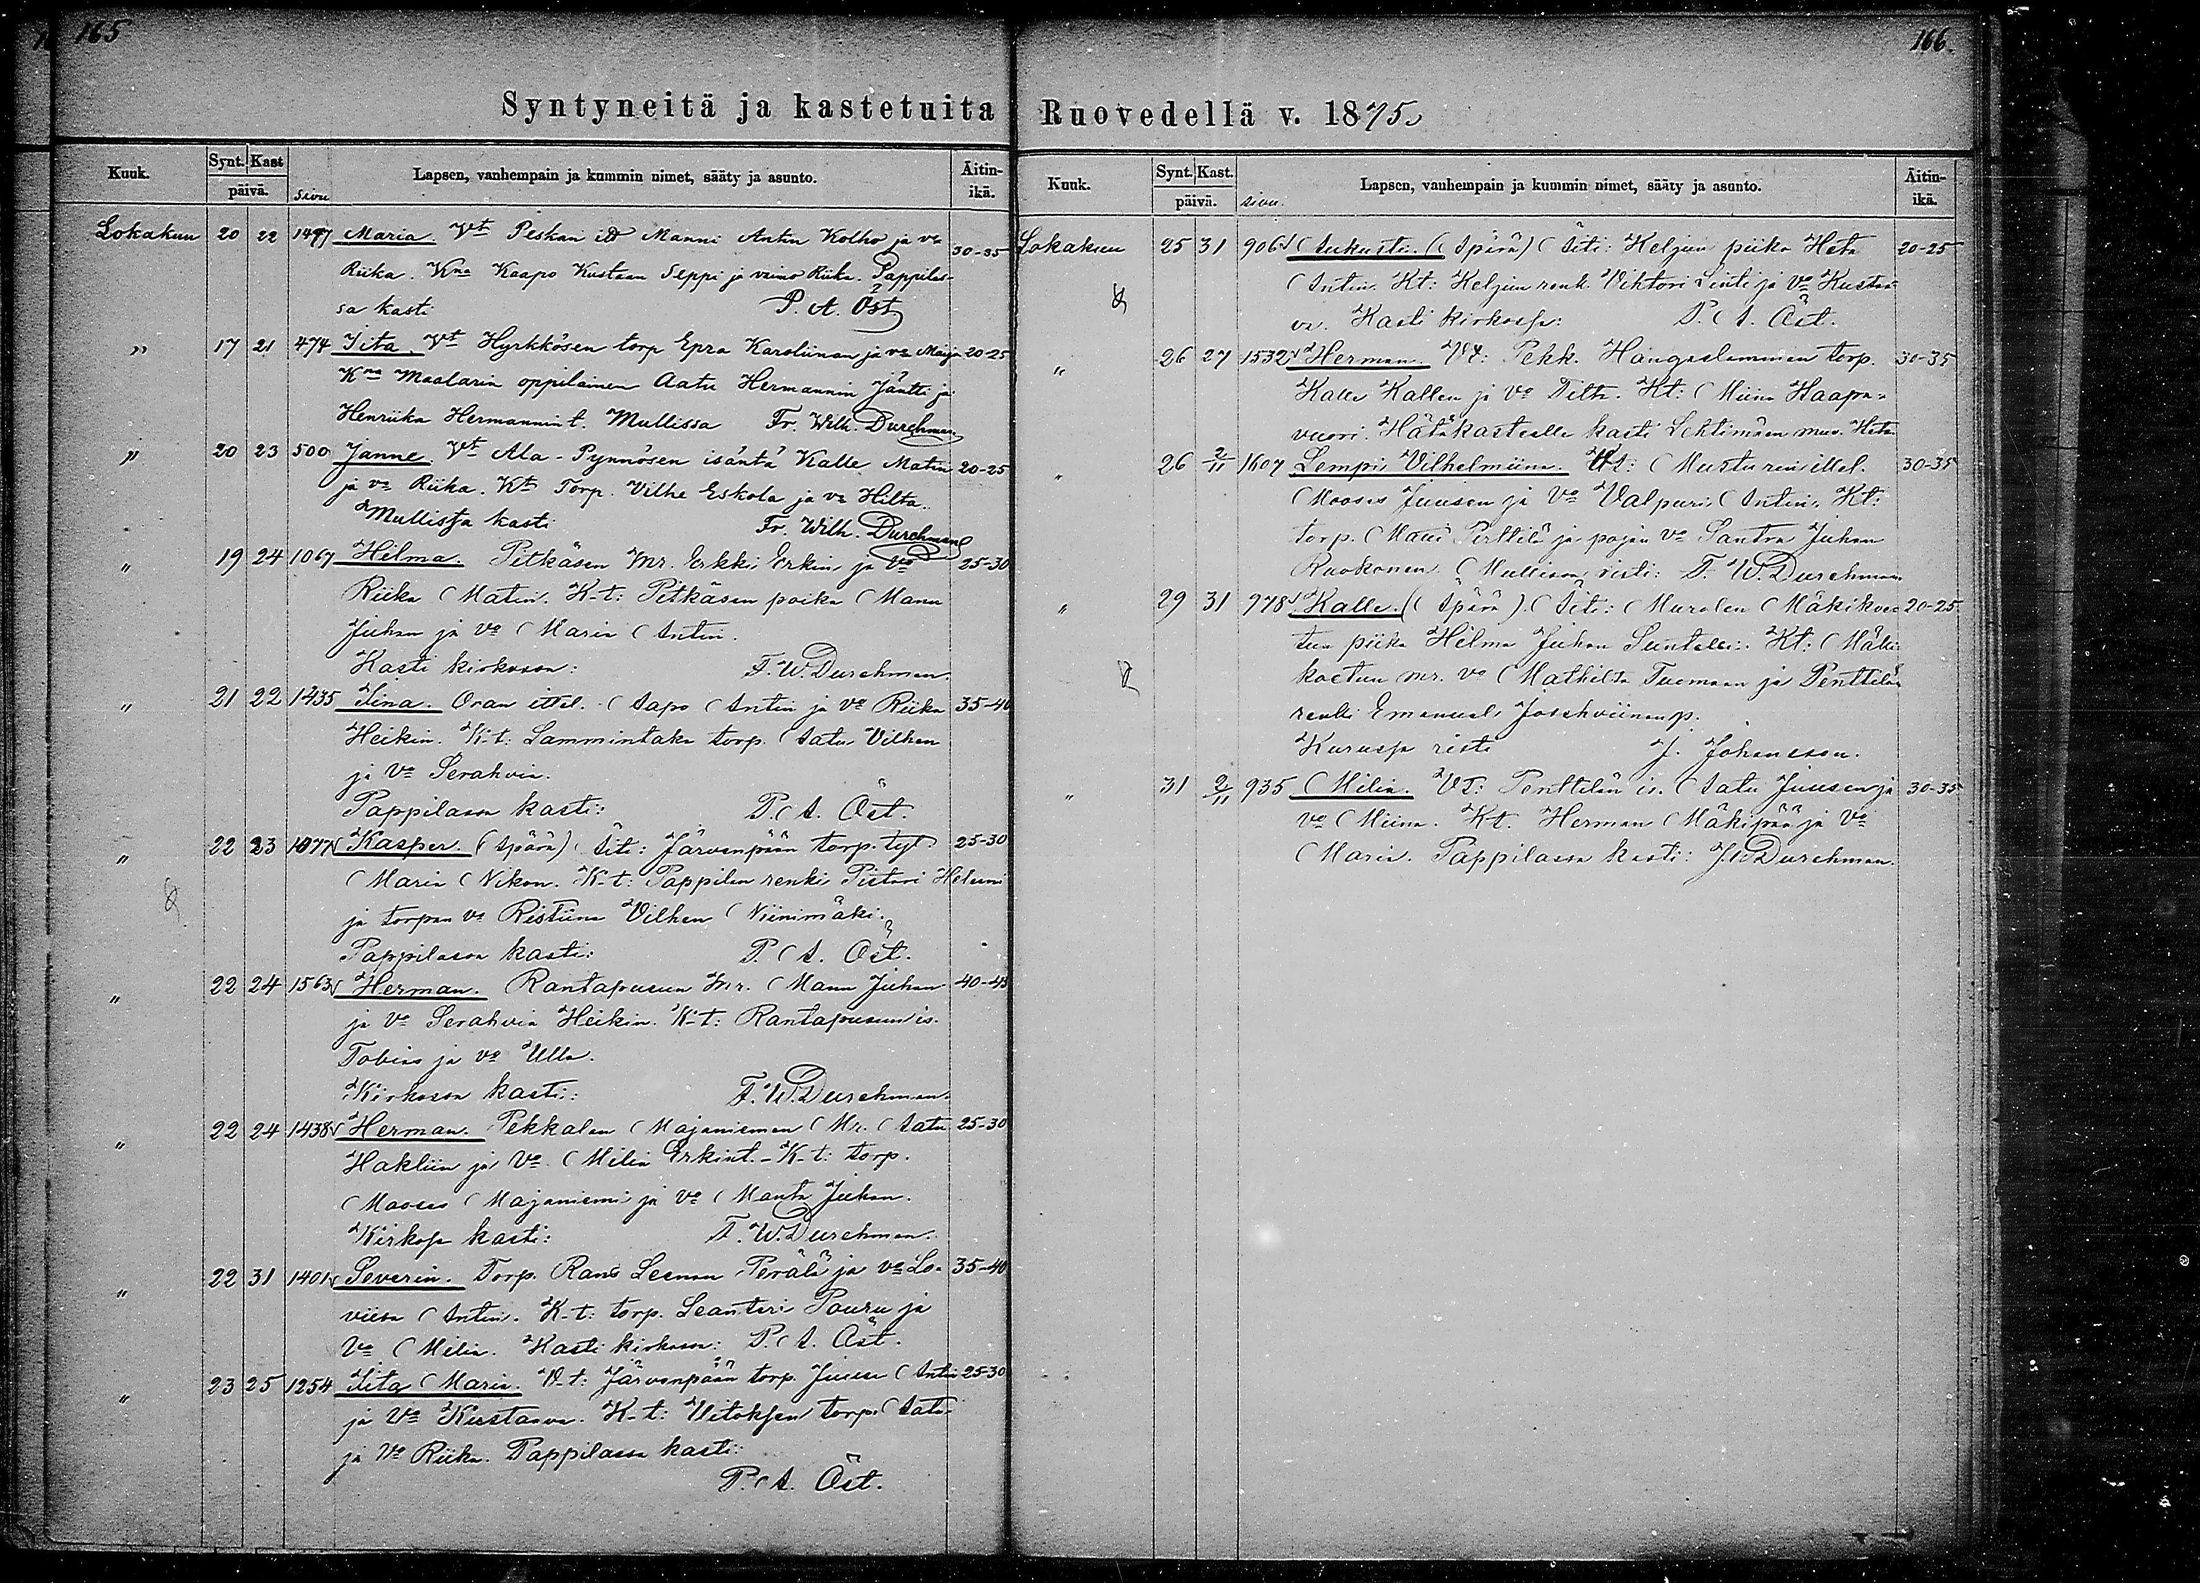 165
Syntyneitä ja kastetuita
Kuuk. Synt. Kast päivä. Sivu Lapsen, vanhempain ja kummin nimet, sääty ja asunto. Äitin-ikä.
Lokakuu 20 22 1497 Maria. Vt Peskan Manni Antin Kolho ja va 30-35
Riika. Kna Kaapo Kustaan Seppi ja vaimo Riika. Pappilas-
sa kasti P. A. Öst
" 17 21 474 Iita. Vt Hyrkkösen torp Epra Karoliinan ja va Maija 20-25
Kna Maalarin oppilainen Aatu Hermannin Jäntti ja
Henriika Hermannin t. Mullissa Fr. Wilh. Durchman
" 20 23 500 Janne. Vt Ala-Pynnösen isäntä Kalle Matin 20-25
ja va Riika. Kt Torp. Vilhe Eskola ja va Hilta.
Mullissa kasti Fr. Wilh. Durchman
" 19 24 1067 Hilma. Pitkäsen mr. Erkki Erkin ja Va 25-30
Riika Matin. K-t: Pitkäsen poika Manu
Juhan ja Va Maria Antin.
Kasti kirkossa: F. W. Durchman.
" 21 22 1435 Iina. Oran ittel. Aapo Antin ja Va Riika 35-40
Heikin. K-t: Lammintaka torp. Aatu Vilhen
ja Va Serahvia.
Pappilassa kasti: P. A. Öst.
" 22 23 1077 Kasper. (Äpärä) Äiti: Järvenpään torp. tyt 25-30
Maria Nikon. K-t: Pappilan renki Pistari Helmi
ja torpan va Ristiina Vilhen Niinimäki.
Pappilassa kasti: P. A. Öst.
" 22 24 1563 Herman. Rantapusun Mr. Manu Juhan 40-45
ja Va Serahvia Heikin. K-t: Rantapusun is.
Tobias ja va Ulla.
Kirkossa kasti: F. W. Durchman.
" 22 24 1438 Herman. Pekkalan Majaniemen Mr. Aatu 25-30
Hakliin ja Va Milia Erkint. - K-t: torp.
Mooses Majaniemi ja Va Manta Juhan.
Kirkossa kasti: F. W. Durchman.
" 22 31 1401 Severin. Torp. Rans Leenan Perälä ja va Lo- 35-40
viisa Antin. K-t: torp. Leanteri Pouru ja
Va Milia. Kasti kirkossa: P. A. Öst.
" 23 25 1254 Iita Maria. V-t: Järvenpään torp. Juuse Antin 25-30
ja Va Kustaava. K-t: Uitoksen torp. Aatu
ja Va Riika. Pappilassa kasti:
P. A. Öst.
166.
Ruovedellä v. 1875.
Kuuk. Synt. Kast. päivä. sivu. Lapsen, vanhempain ja kummin nimet, sääty ja asunto. Äitin-ikä.
Lokakuu 25 31 906 Aukusti. (Äpärä) Äiti: Keljun piika Heta 20-25
Antin. Kt: Keljun renk. Vihtori Linti ja Va Kustaa-
va. Kasti kirkossa: P. A. Öst.
" 26 27 1532 Herman. Vt: Pekk. Hangaslammin torp. 30-35
Kalle Kallen ja Va Tilta. Kt: Miina Haapa-
vuori. Hätäkasteelle kasti Lehtimäen Heta
" 26 2/11 1607 Lempi Vilhelmiina. Vt: ittel. 30-35
Mooses Juusen ja Va Valpuri Antin. Kt:
torp. Manu Perttilä ja pojan Va Santra Juhan
Ruokonen. Mullissa risti: F. W. Durchman
" 29 31 978 Kalle. (Äpärä). Äiti: Murolen Mäkikoe- 20-25
tun piika Hilma Juhan Suntelli. Kt: Mäki-
koetun mr. va Mathilda Tuomaan ja Penttilän
renki Emanuel Josehviinan p.
Kurussa risti J. Johansson.
" 31 2/11 935 Milia. Vt: Penttilän is. Aatu Juusen ja 30-35
va Miina. Kt. Herman Mäkipää ja Va
Maria. Pappilassa kasti: F. W. Durchman.